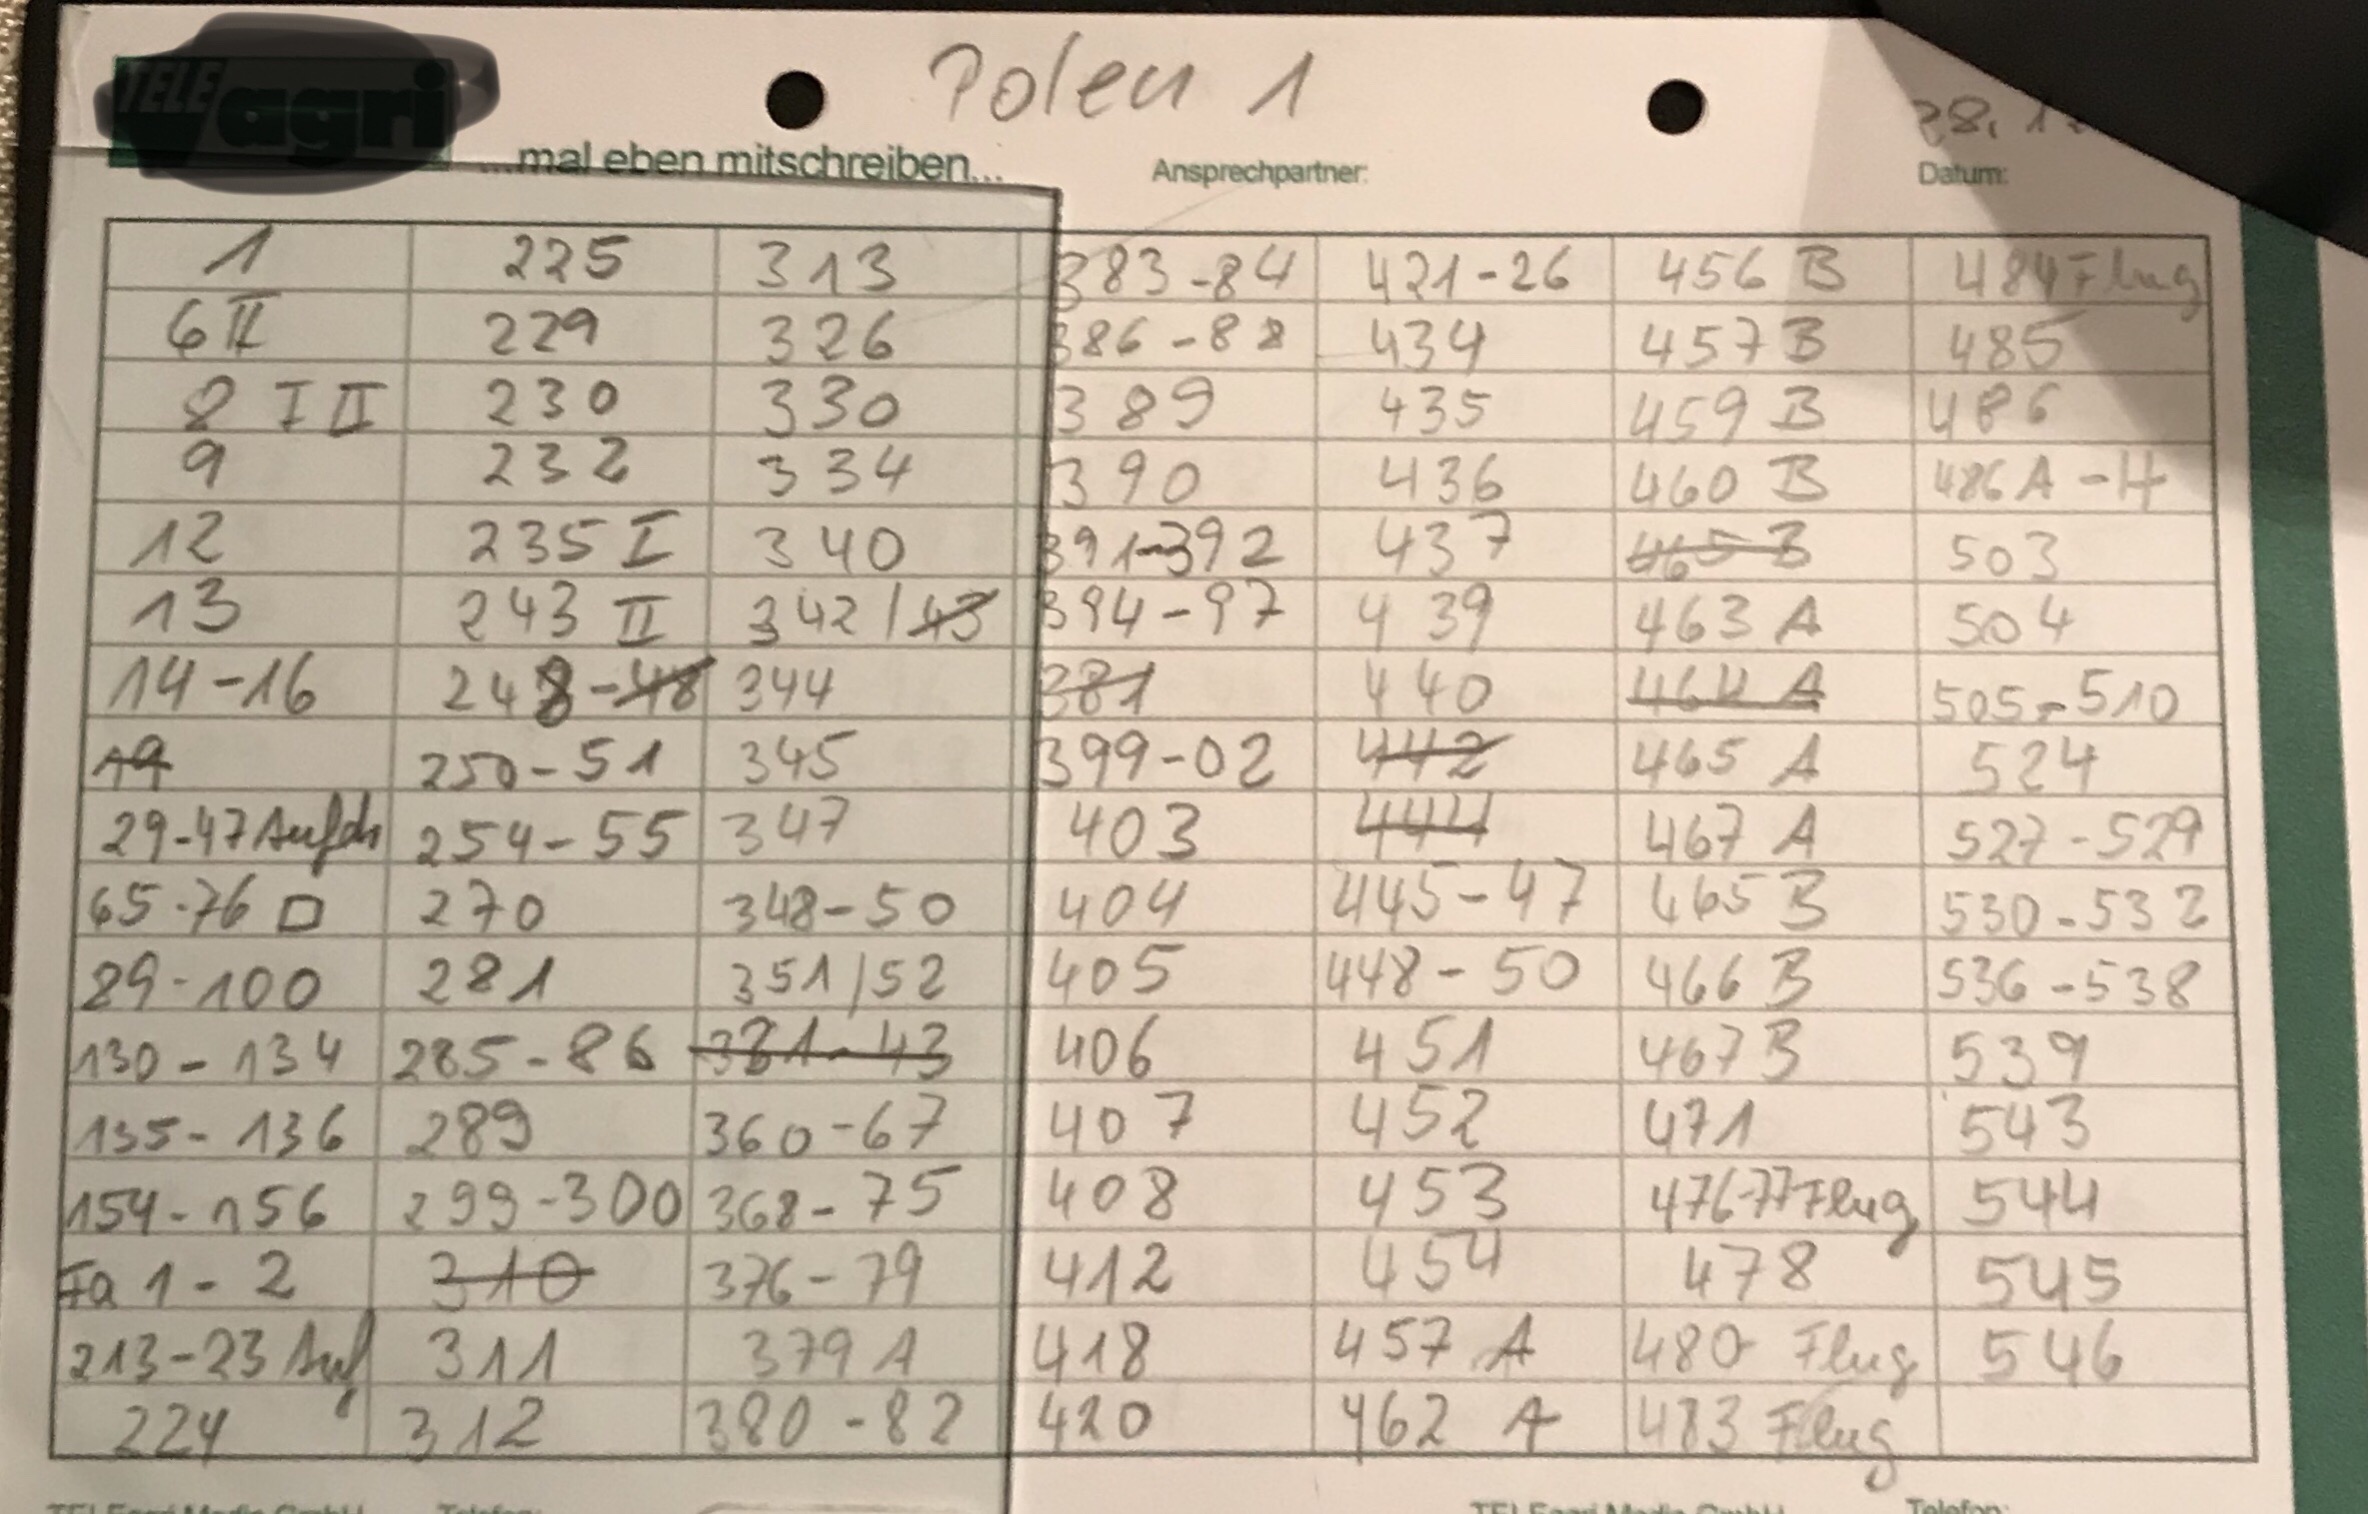 TELE agri
Polen 1
28. 1
...mal eben mitschreiben...
Ansprechpartner:
Datum:
1 225 313 383-84 421-26 456 B 484 Flug
6 II 229 326 386-88 434 457 B 485
8 I II 230 330 389 435 459 B 486
9 232 334 390 436 460 B 486 A-H
12 235 I 340 391-392 437 465 B 503
13 243 II 342/43 394-97 439 463 A 504
14-16 248-48 344 381 440 464 A 505-510
19 250-51 345 399-02 442 465 A 524
29-47 Aufdr 254-55 347 403 444 467 A 527-529
65-76 □ 270 348-50 404 445-47 465 B 530-532
89-100 281 351/52 405 448-50 466 B 536-538
130-134 285-86 381-43 406 451 467 B 539
135-136 289 360-67 407 452 471 543
154-156 299-300 368-75 408 453 476-77 Flug 544
Fa 1-2 310 376-79 412 454 478 545
213-23 Auf 311 379 A 418 457 A 480 Flug 546
224 312 380-82 420 462 A 483 Flug
Telefon: